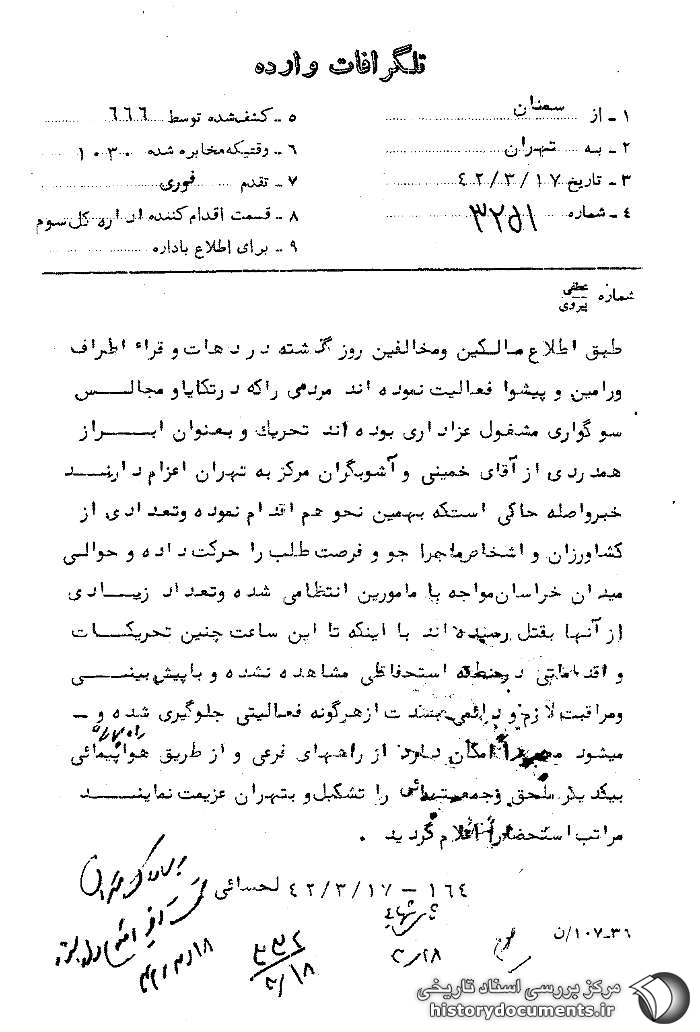 تلگرافات وارده
۱ - از سمنان
۲ - به تهران
۳ - تاریخ ۴۲/۳/۱۷
۴ - شماره ۳۲۵۱
۵ - کشف‌شده توسط ۶۶۶
۶ - وقتیکه مخابره شده ۱۰۳۰
۷ - تقدم فوری
۸ - قسمت اقدام کننده اداره کل سوم
۹ - برای اطلاع باداره
شماره عطفی
پیروی
طبق اطلاع مالکین ومخالفین روز گذشته در دهات و قراء اطراف
ورامین و پیشوا فعالیت نموده اند مردمی راکه درتکایاو مجالس
سوگواری مشغول عزاداری بوده اند تحریک و بعنوان ابراز
همدردی از آقای خمینی و آشوبگران مرکز به تهران اعزام دارند
خبرواصله حاکی استکه بهمین نحو هم اقدام نموده وتعدادی از
کشاورزان و اشخاص‌ماجرا جو و فرصت طلب را حرکت داده و حوالی
میدان خراسان‌مواجه با مامورین انتظامی شده وتعداد زیادی
از آنها بقتل رسیده اند با اینکه تا این ساعت چنین تحریکات
و اقداماتی درمنطقه استحفاظی مشاهده نشده و باپیش‌بینی
ومراقبت لازم و دائمی از هرگونه فعالیتی جلوگیری شده و -
میشود امکان دارد از راههای فرعی و از طریق هواپیمائی
بیکدیگر ملحق وجمعیتهائی را تشکیل و بتهران عزیمت نمایند
مراتب استحضاراً اعلام گردید .
۱۶۴ - ۴۲/۳/۱۷ لحسائی
۳۶-۱۰۷/ن
۳/۱۸
۴۲/۳/۱۸
مرکز بررسی اسناد تاریخی
historydocuments.ir